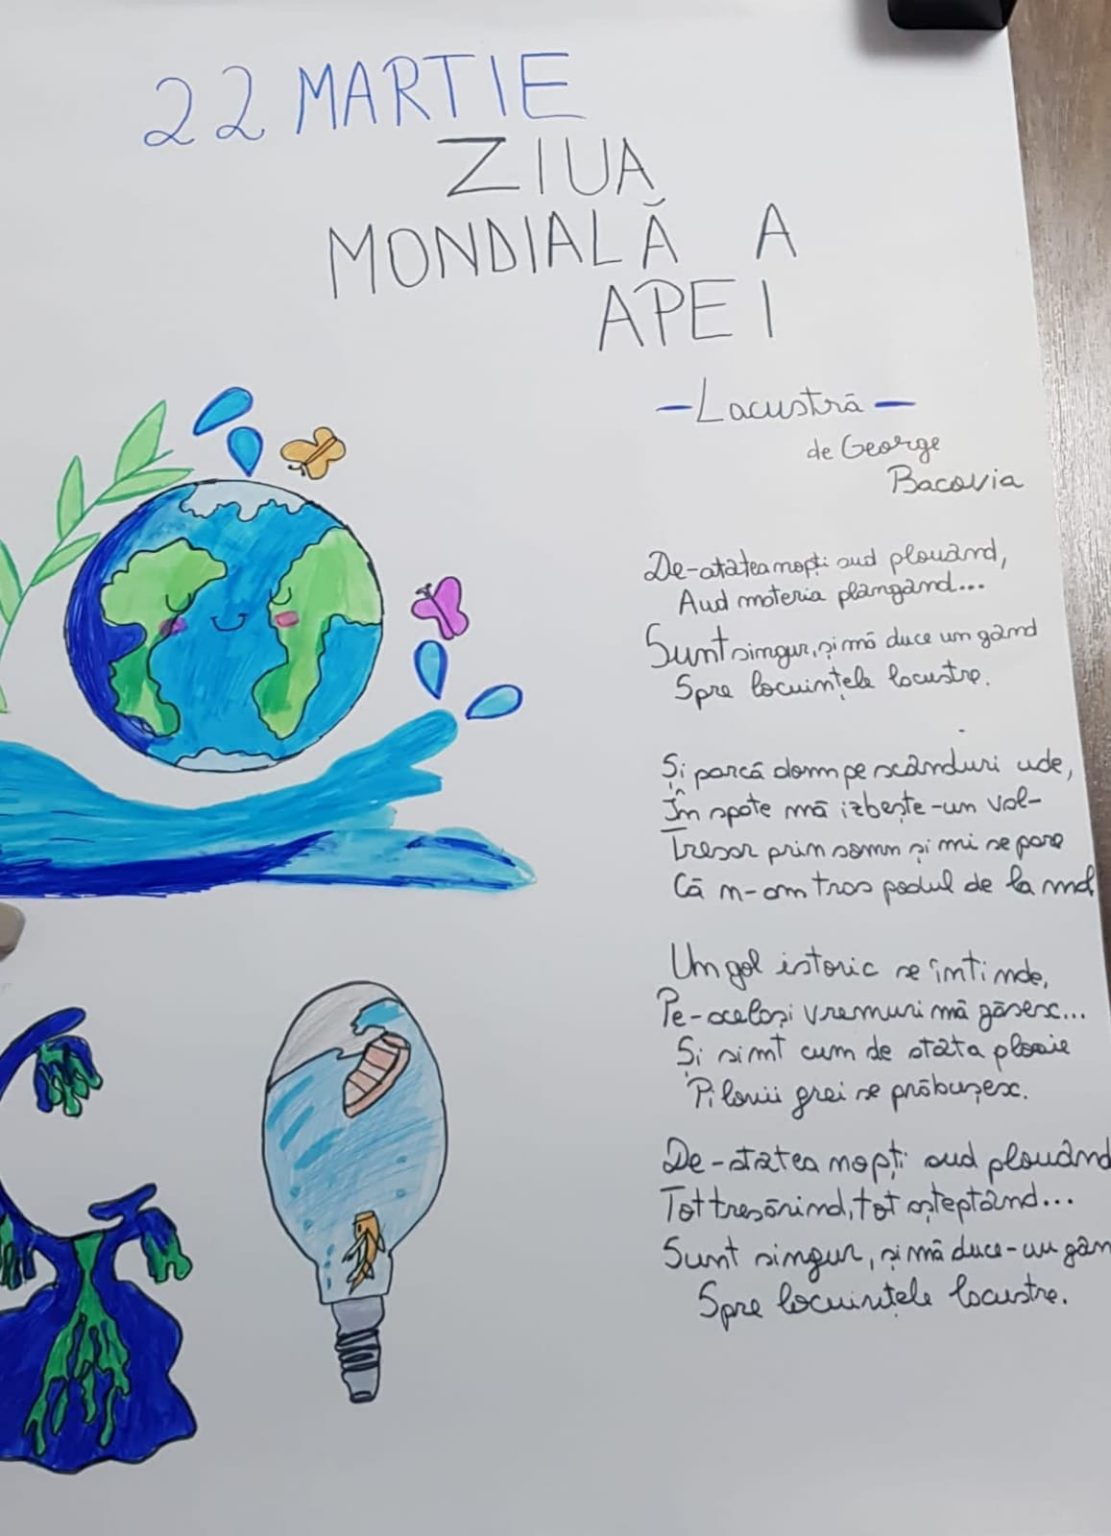 22 MARTIE
ZIUA
MONDIALĂ A
APEI
- Lacustră -
de George
Bacovia
De-atâtea nopți aud plouând,
Aud materia plângând...
Sunt singur, și mă duce un gând
Spre locuințele lacustre.
Și parcă dorm pe scânduri ude,
În spate mă izbește-un val-
Tresar prin somn și mi se pare
Că n-am tras podul de la mal
Un gol istoric se întinde,
Pe-același vremuri mă găsesc...
Și simt cum de atâta ploaie
Piloții grei se prăbușesc.
De-atâtea nopți aud plouând
Tot tresărind, tot așteptând...
Sunt singur, și mă duce-un gân
Spre locuințele lacustre.